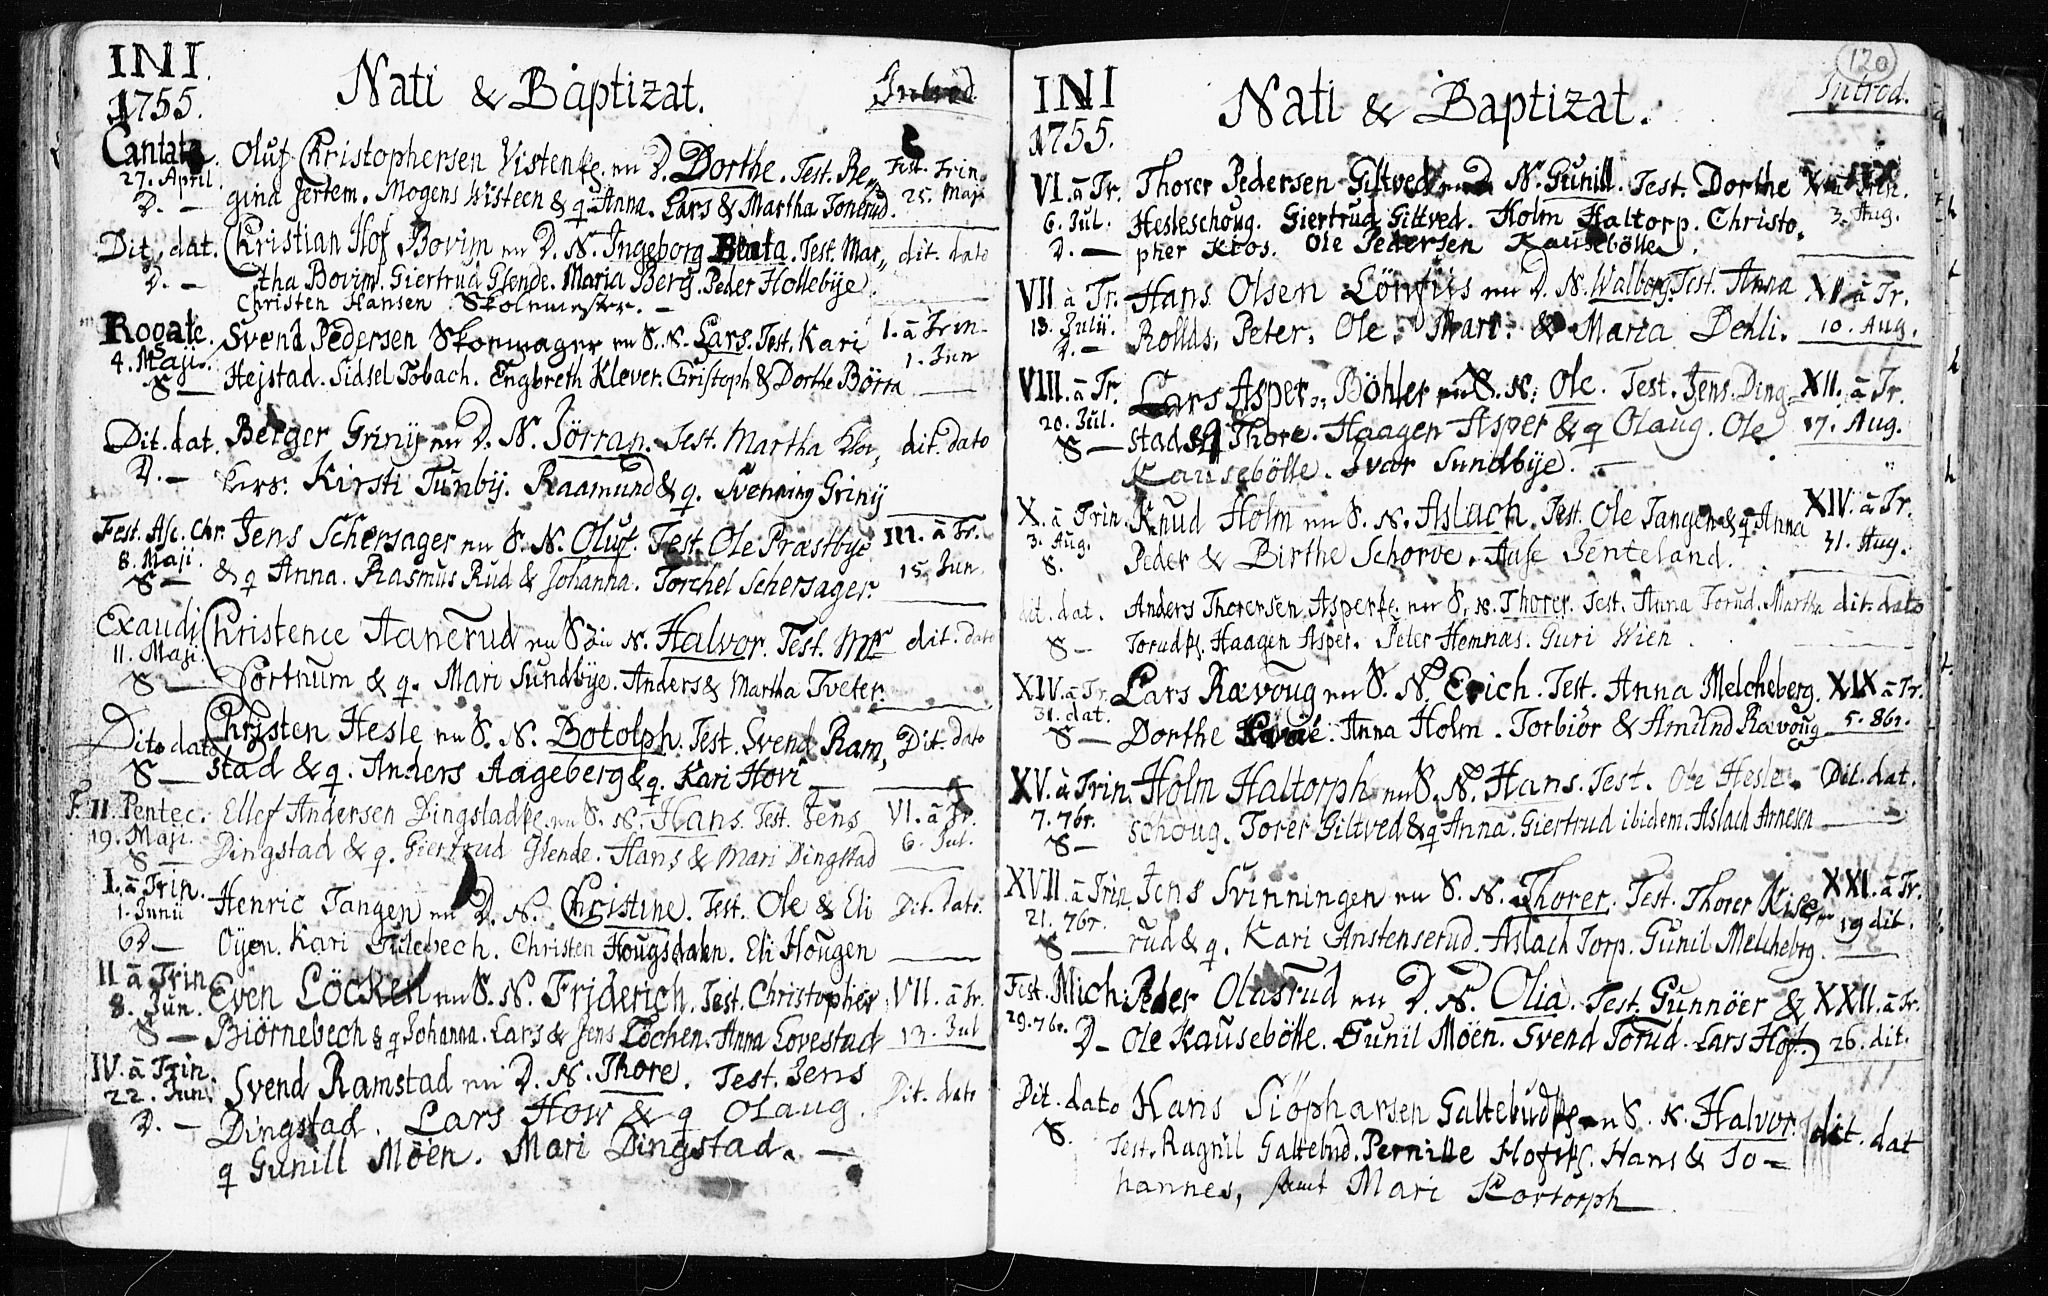 INI.
1755.
Nati & Baptizat.
Introd
Cantate. Oluf Christophersen Vistenke. nu D. Dorthe. Test. Re„ Fest. Trin.
27. April. gina Jertem. Mogens Wisteen & q. Anna. Lars & Martha Tonerud. 25. Maji
D. —
Dit. dat. Christian Hof Bovim nu D. N. Ingeborg Beata. Test. Mar„ dit. dato
D. — tha Bovim. Giertrud Glende. Maria Berg. Peder Hollebÿe.
Christen Hansen Skolemester. —
Rogate. Svend Pedersen Skomager nu S. N. Lars. Test. Kari I. à Trin.
4. Maji. Hejstad. Sidsel Tobach. Engbreth Klever. Christoph & Dorthe Börra 1. Jun
S —
Dit. dat. Berger Grinÿ nu D. N. Jörran. Test. Martha dit. dato
D. — Kirsti Tunbÿ. Raamund & q. Svenning Grinÿ
Fest. Asc. Chr. Jens Schersager nu S. N. Oluf. Test. Ole Præstbÿe III. à Tr.
8. Maji. & q Anna. Rasmus Rud & Johanna. Torchel Schersager. 15. Jun.
S —
Exaudi Christence Aanerud nu S N. Halvor. Test. Mr dit. dato
11. Maji. Cortnum & q. Mari Sundbÿe. Anders & Martha Tveter.
S —
Dito dato Christen Hesle nu S. N. Botolph. Test. Svend Ram„ Dit. dato
S — stad & q. Anders Aageberg & q. Kari Hovi —
F. II. Pentec. Ellef Andersen Dingstadke. nu S. N. Hans. Test. Jens VI. à Tr.
19. Maji. Dingstad & q. Giertrud Glende. Hans & Mari Dingstad 6. Jul.
S —
I. à Trin. Henric Tangen nu D. N. Christine. Test. Ole & Eli Dit. dato.
1. Junii Oÿen. Kari Gulebech. Christen Hougsdalen. Eli Hougen
D —
II à Trin. Even Löcken nu S. N. Friderich. Test. Christopher VII. à Tr.
8. Jun. Biörnebech & q Johanna. Lars & Jens Löchen. Anna Lovestad 13. Jul
S —
IV. à Trin. Svend Ramstad nu D. N. Thore. Test. Jens Dit. dato
22. Jun. Dingstad. Lars How & q Olaug.
D. — q Gunill Möen. Mari Dingstad. —
120
INI
1755.
Nati & Baptizat.
Introd.
VI. à Tr. Thorer Pedersen Giltved nu D N. Gunill. Test. Dorthe X. à Trin.
6. Jul. Hesleschoug. Giertrud Giltved. Holm Haltorp. Christo„ 3. Aug.
D. — pher Kros. Ole Pedersen Kausebölle.
VII à Tr. Hans Olsen Lönfiis nu D. N. Walborg. Test. Anna XI. à Tr.
13. Julii. Rollds. Peter. Ole. Mari. & Maria Dehli. 10. Aug.
D. —
VIII. à Tr. Lars Asper„ Böhler nu S. N. Ole. Test. Jens Ding„ XII. à Tr.
20. Jul. stad & q Thore. Haagen Asper & q Olaug. Ole 17. Aug.
S — Kausebölle. Ivar Sundbÿe. —
X. à Trin. Knud Holm nu S. N. Aslach. Test. Ole Tangen & q Anna XIV. à Tr.
3. Aug. Peder & Birthe Schorve. Aase Benteland. 31. Aug.
S.
dit. dat. Anders Thorersen Asperke. nu S. N. Thorer. Test. Anna Torud. Martha dit. dato
S — Torudks. Haagen Asper. Peter Hemnæs. Guri Wien.
XIV. à Tr. Lars Rævoug nu S. N. Erich. Test. Anna Melcheberg. XIX à Tr.
31. dat. Dorthe Anna Holm. Torbiör & Amund Rævoug 5. 8br.
S —
XV. à Trin. Holm Haltorph nu S. N. Hans. Test. Ole Hesle„ Dit. dat.
7. 7br. schoug. Torer Giltved & q Anna. Giertrud ibidem. Aslach Arnesen
S —
XVII. à Trin. Jens Svinningen nu S. N. Thorer. Test. Thorer Kise„ XXI. à Tr.
21. 7br. rud & q. Kari Anstenserud. Aslach Torp. Gunil Melcheberg. 19 dit.
S —
Fest. Mich. Peder Olasrud nu D. N. Olia. Test. Gunnöer & XXII. à Tr.
29. 7br. D — Ole Kausebölle. Gunil Möen. Svend Torud. Lars Hof. 26. dit.
Dit. dato Hans Siöpharsen Galtebudks. nu S. N. Halvor. dit. dat
S. Test. Ragnil Galtebud. Pernille Hofsks. Hans & Jo„
hannes, samt Mari Kortorph